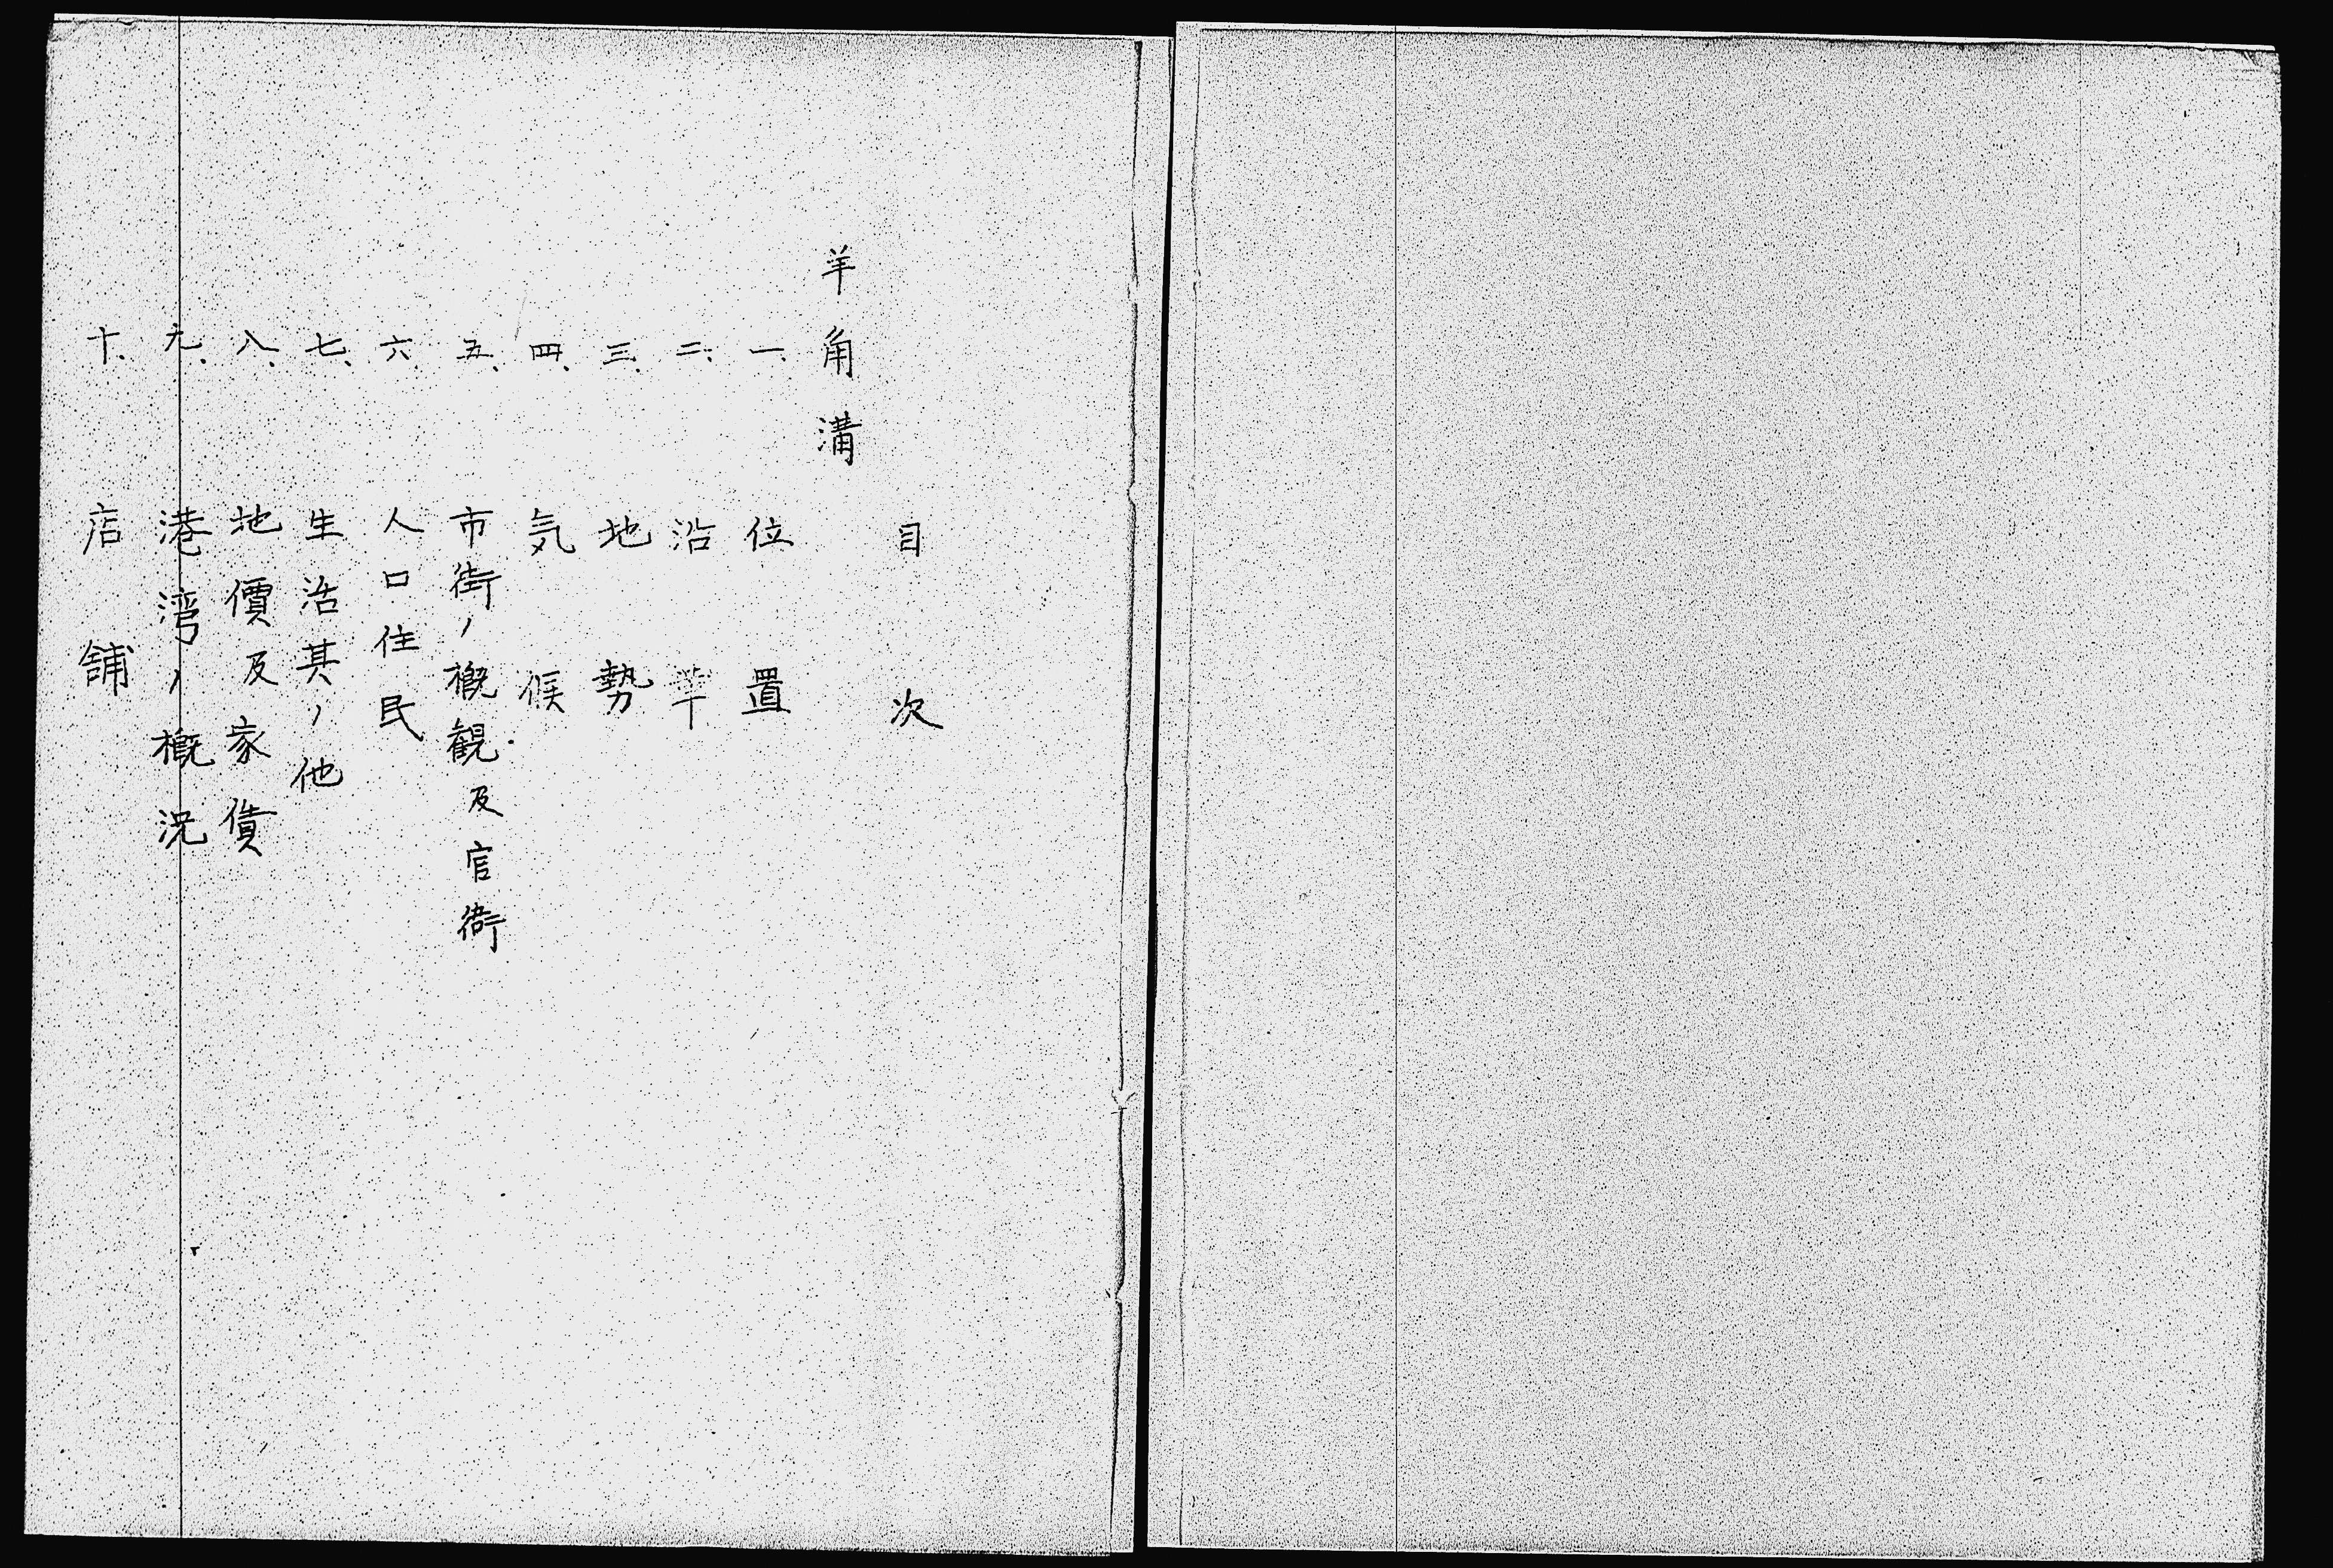 目次
羊角溝
一、位置
二、沿革
三、地勢
四、気候
五、市街ノ概観及官衙
六、人口住民
七、生活其ノ他
八、地價及家賃
九、港湾ノ概況
十、店舗